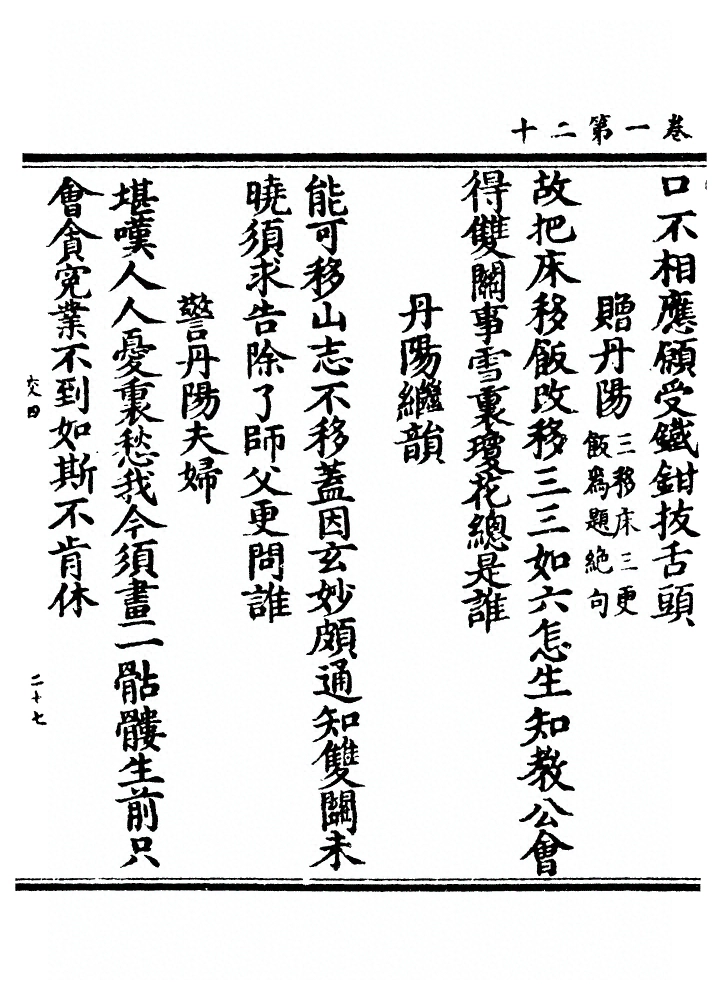 卷一第二十
口不相應願受鐵鉗拔舌頭
贈丹陽 三移床三更
飯為題絶句
故把床移飯改移三三如六怎生知教公會
得雙關事雪裏瓊花總是誰
丹陽繼韻
能可移山志不移蓋因玄妙頗通知雙關未
曉須求告除了師父更問誰
警丹陽夫婦
堪嘆人人憂裏愁我今須畫一骷髏生前只
會貪寃業不到如斯不肯休
交四
二十七